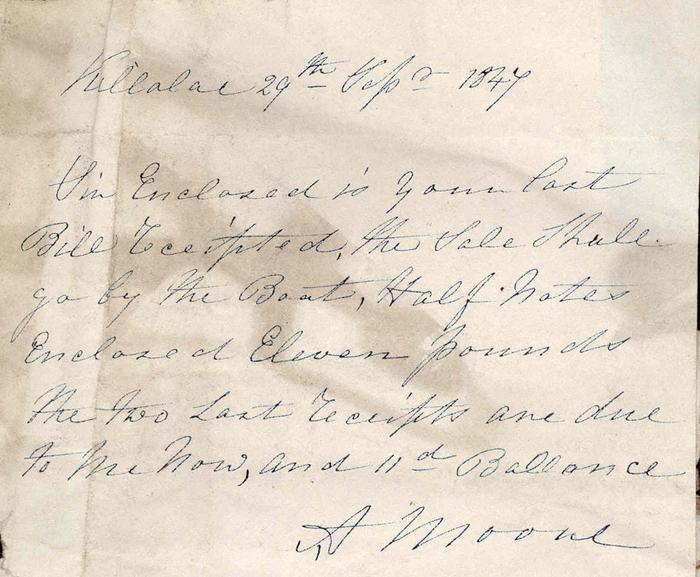 Killaloe 29th Sepr 1847
Sir Enclosed is your last
Bill Receipted, the Sale Shall
go by the Boat, Half Notes
Enclosed Eleven pounds
the two Last Receipts are due
to Me Now, and 11d Ballance
A Moore